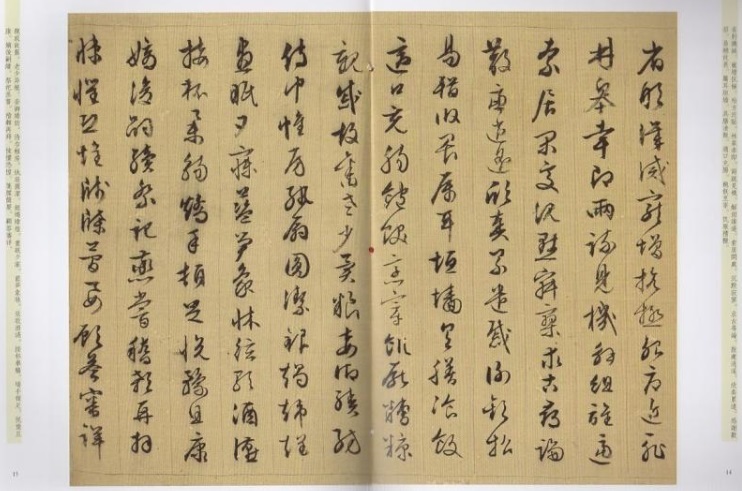 省躬譏誡寵增抗極殆辱近恥
林皋幸即兩疏見機解組誰逼
索居閑處沉默寂寥求古尋論
散慮逍遙欣奏累遣慼謝歡招
易輶攸畏屬耳垣牆具膳飡飯
適口充腸飽飫烹宰飢厭糟糠
14
親戚故舊老少異糧妾御績紡
侍巾帷房紈扇圓潔銀燭煒煌
晝眠夕寐藍笋象床弦歌酒宴
接杯舉觴矯手頓足悅豫且康
嫡後嗣續祭祀烝嘗稽顙再拜
悚懼恐惶牋牒簡要顧答審詳
15